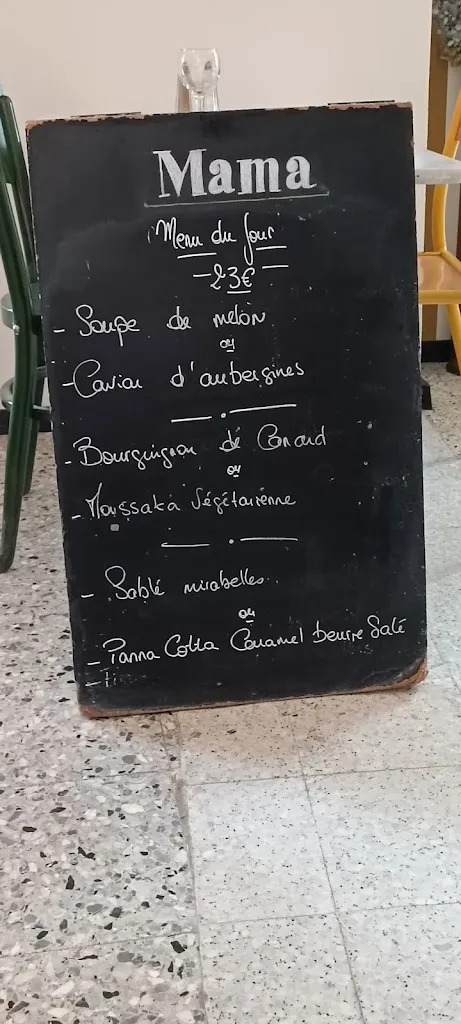 Mama
Menu du Jour
- 23€ -
- Soupe de melon
ou
- Caviar d'aubergines
- Bourguignon de Canard
ou
- Moussaka Végétarienne
- Sablé mirabelles
ou
- Panna Cotta Caramel beurre Salé